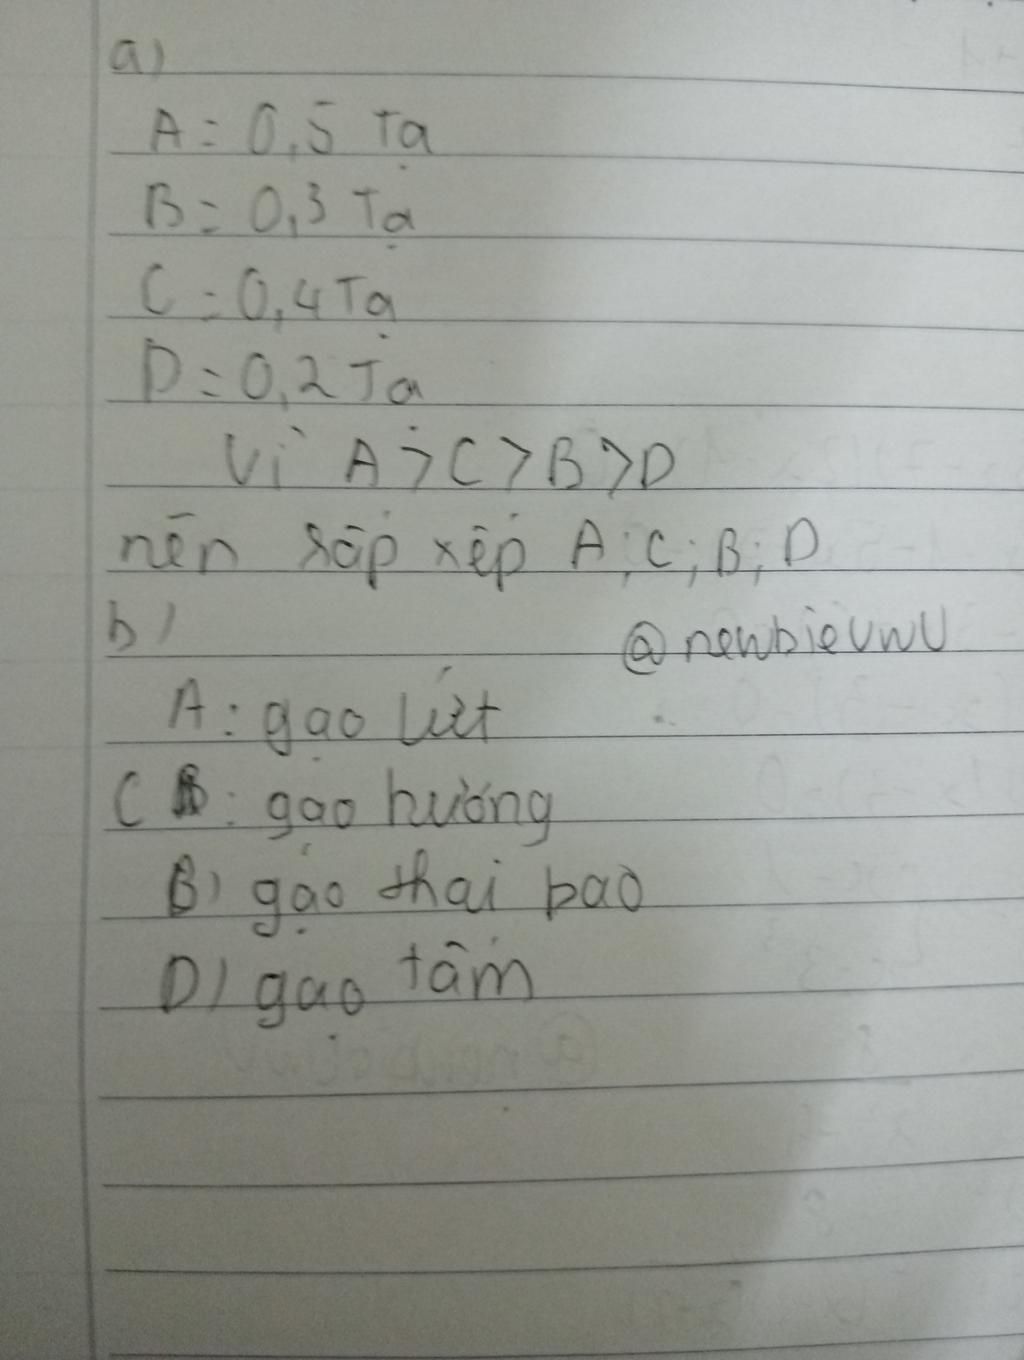 a)
A = 0,5 Tạ
B = 0,3 Tạ
C = 0,4 Tạ
D = 0,2 Tạ
Vì A > C > B > D
nên sắp xếp A; C; B; D
b)
@newbieUwU
A: gạo lứt
C B: gạo hương
B) gạo thái bao
D) gạo tấm